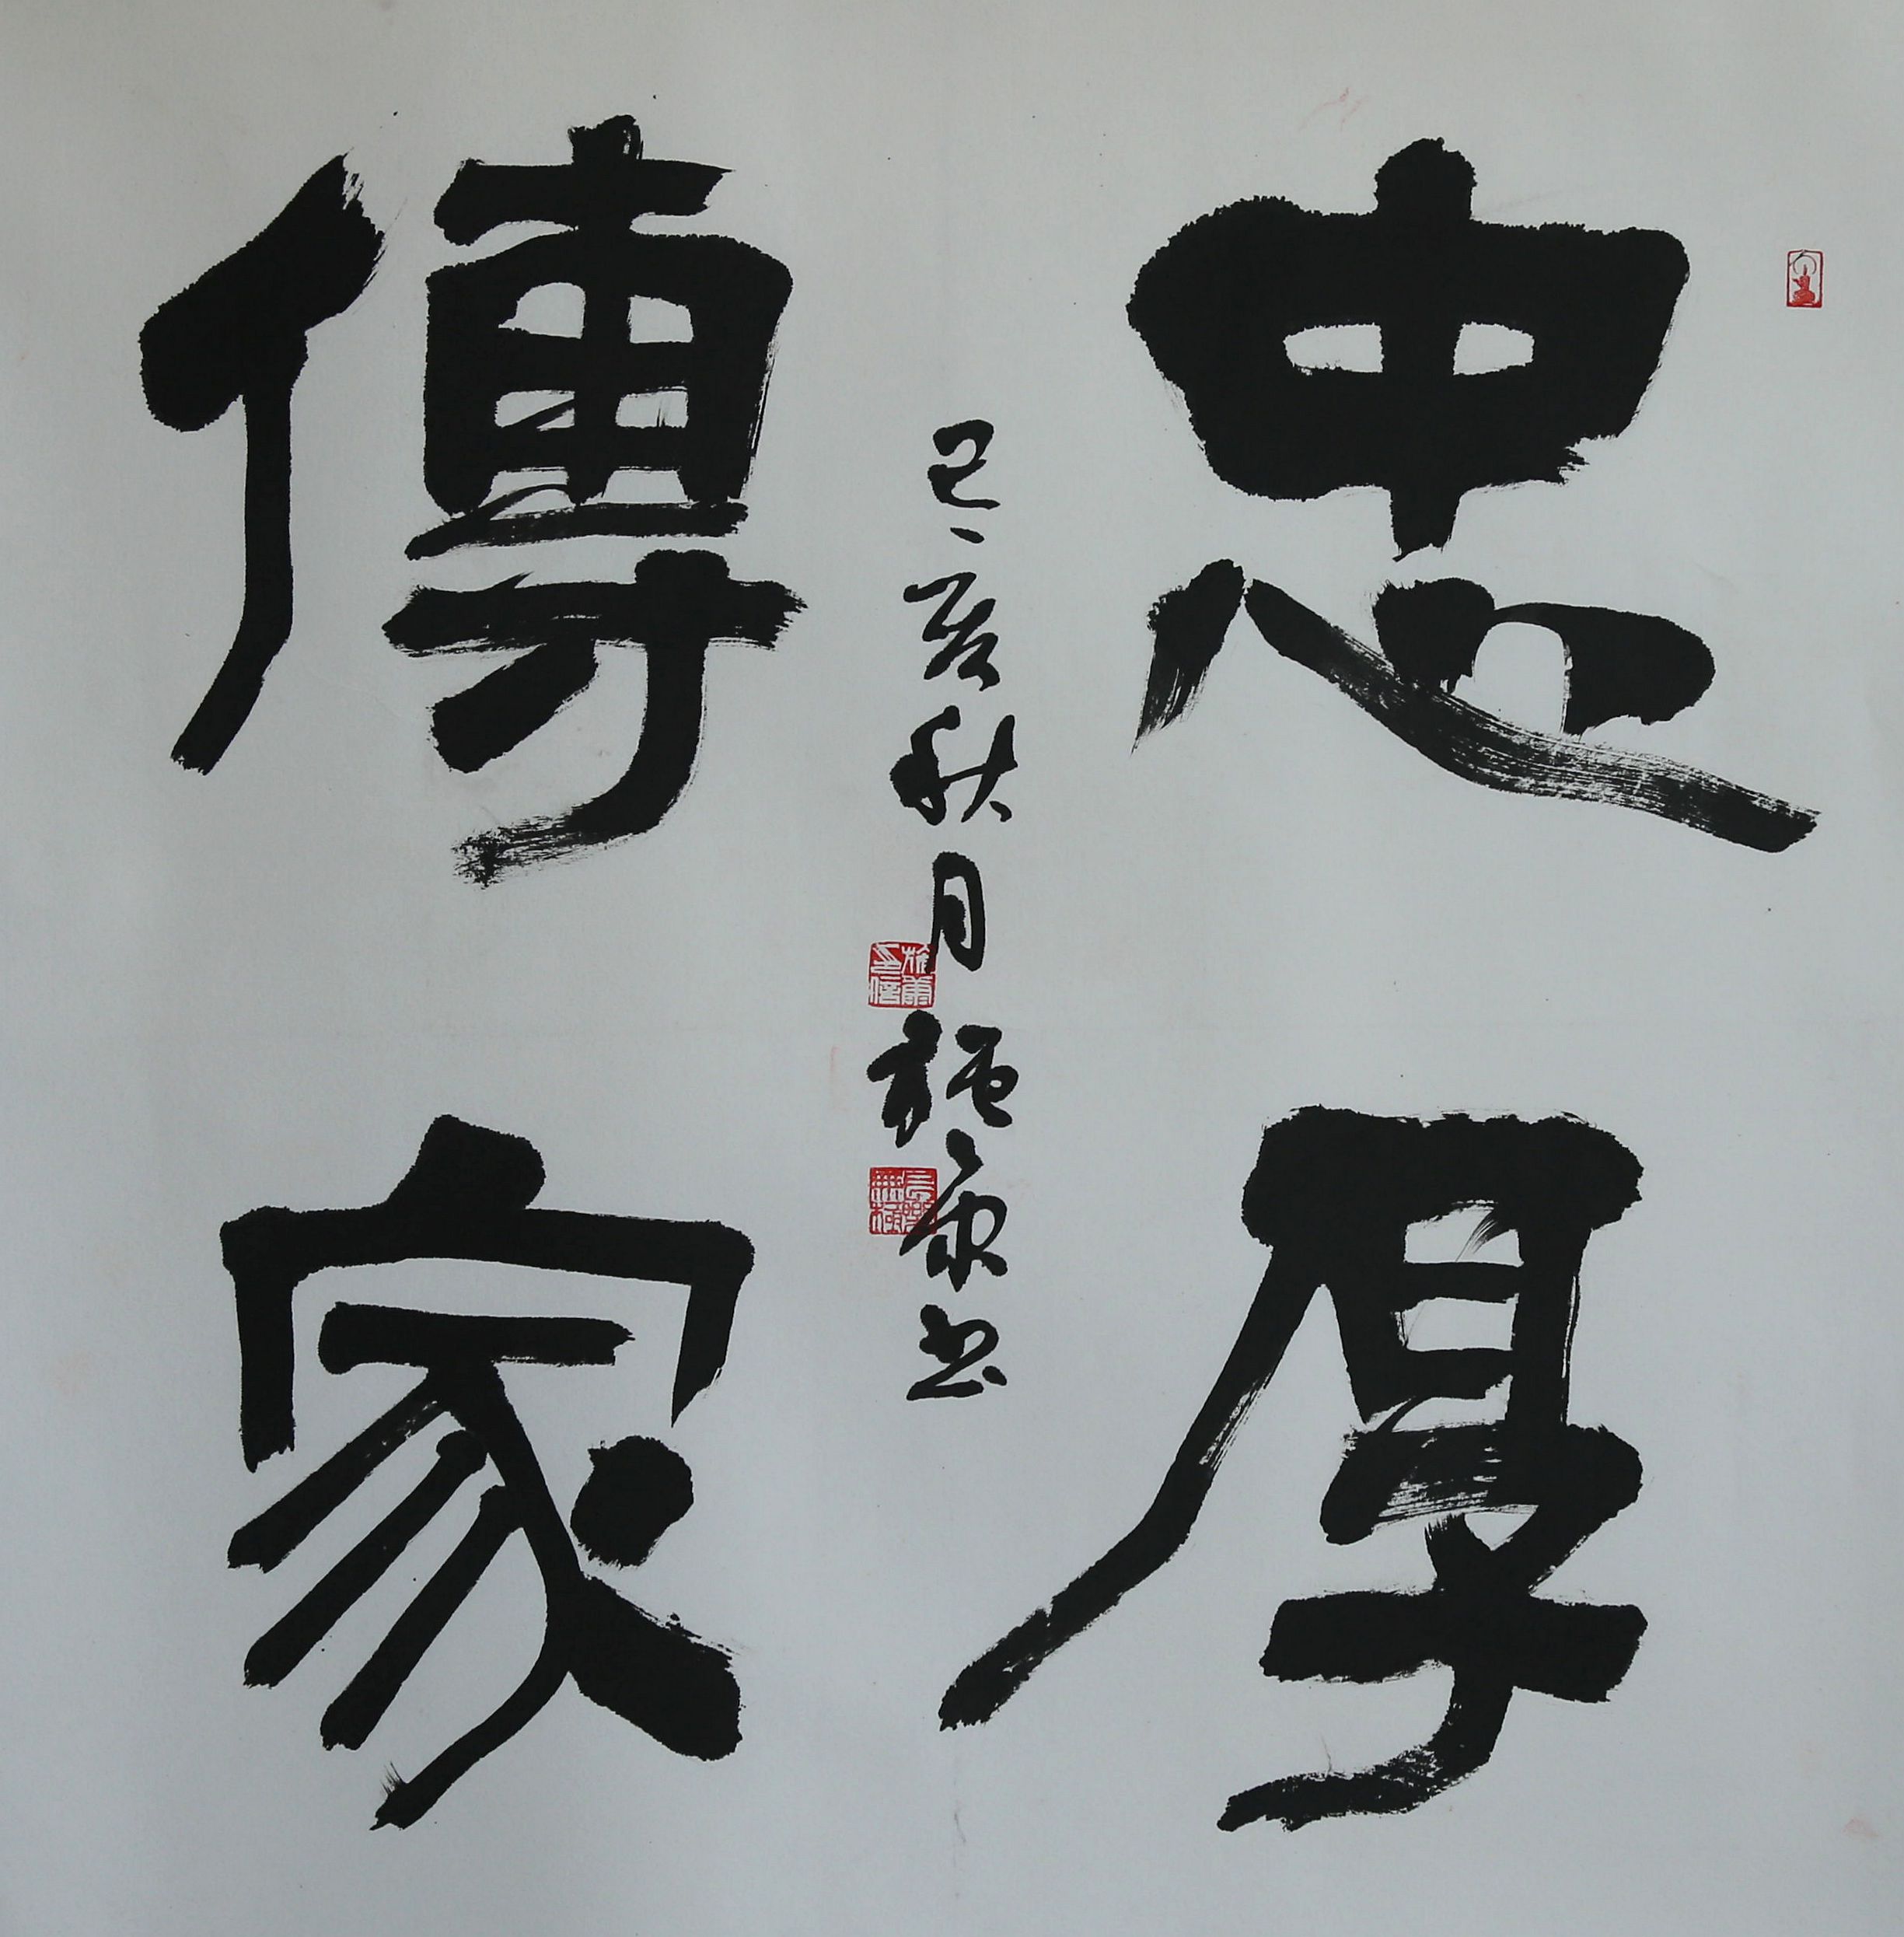 忠厚
傳家
己亥秋月施康书